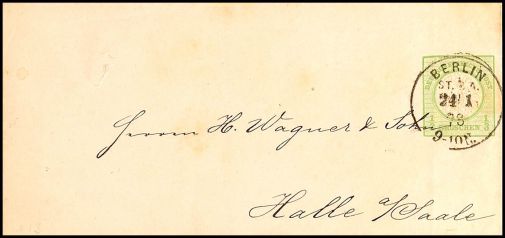 BERLIN
24 1
9-10V.
GROSCHEN
Herrn H. Wagner & Sohn
Halle a/Saale